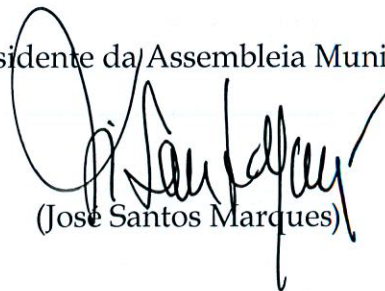 sidente da Assembleia Muni
(José Santos Marques)